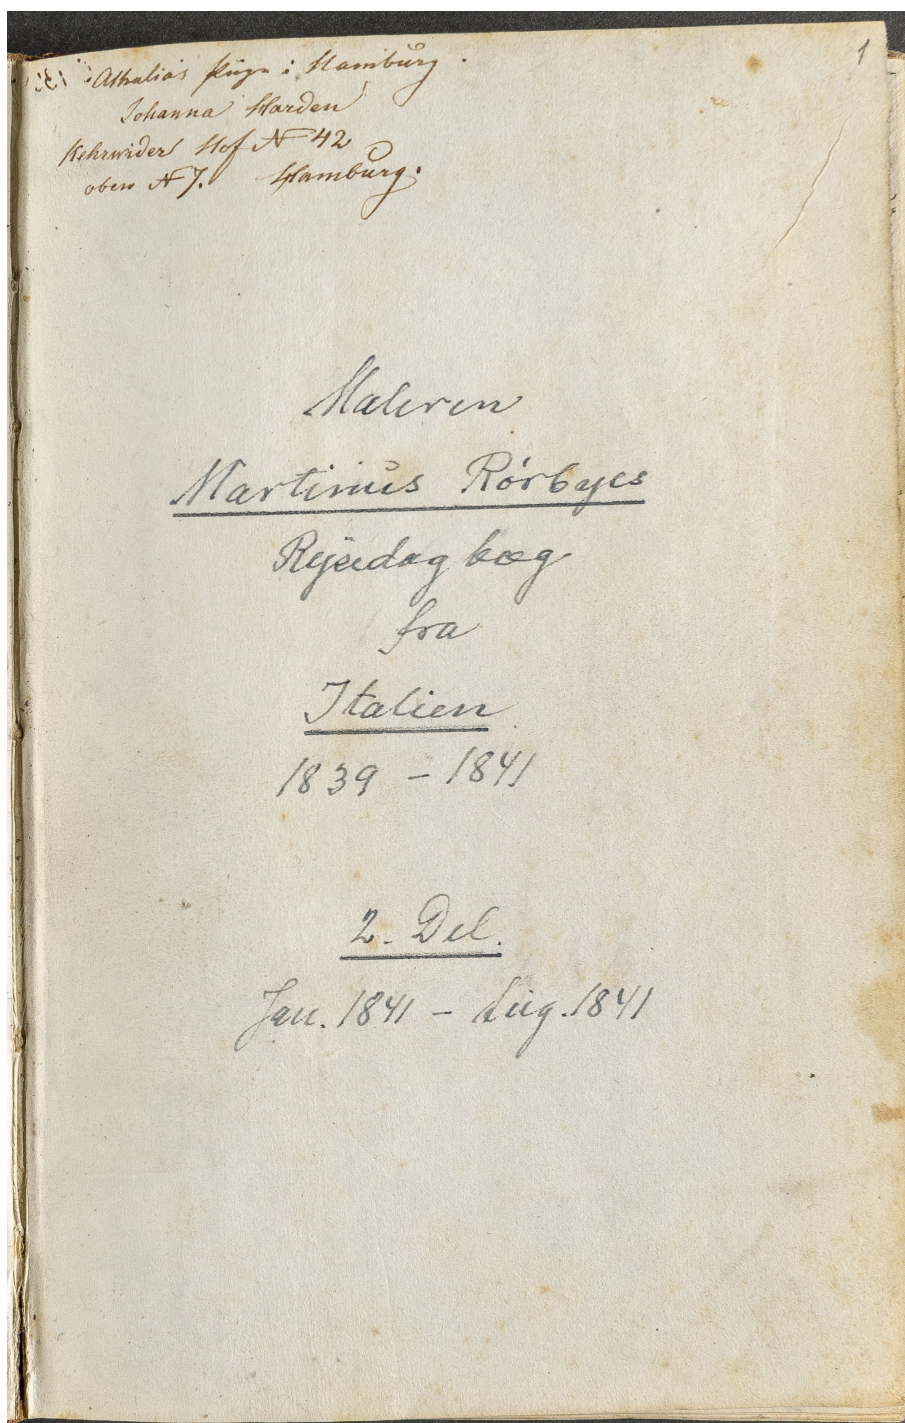 1
Athalias Piige i Hamburg.
Johanna Harden
Kehrwider Hof N 42
oben N 7. Hamburg.
Maleren
Martinus Rørbyes
Rejsedagbog
fra
Italien
1839 - 1841
2. Del.
Jan. 1841 - Aug. 1841